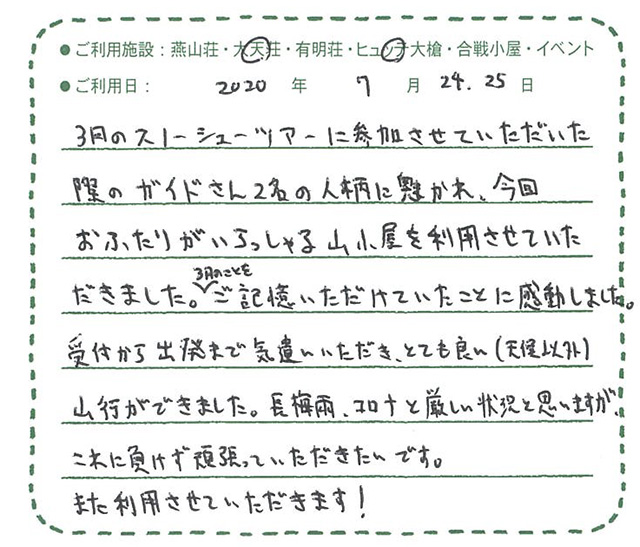 ●ご利用施設：燕山荘・大天荘・有明荘・ヒュッテ大槍・合戦小屋・イベント
●ご利用日： 2020 年 7 月 24.25 日
3月のスノーシューツアーに参加させていただいた
際のガイドさん2名の人柄に魅かれ、今回
おふたりがいらっしゃる山小屋を利用させていた
3月のことを
だきました。ご記憶いただけていたことに感動しました。
受付から出発まで気遣いいただき、とても良い(天候以外)
山行ができました。長梅雨、コロナと厳しい状況と思いますが、
これに負けず頑張っていただきたいです。
また利用させていただきます！